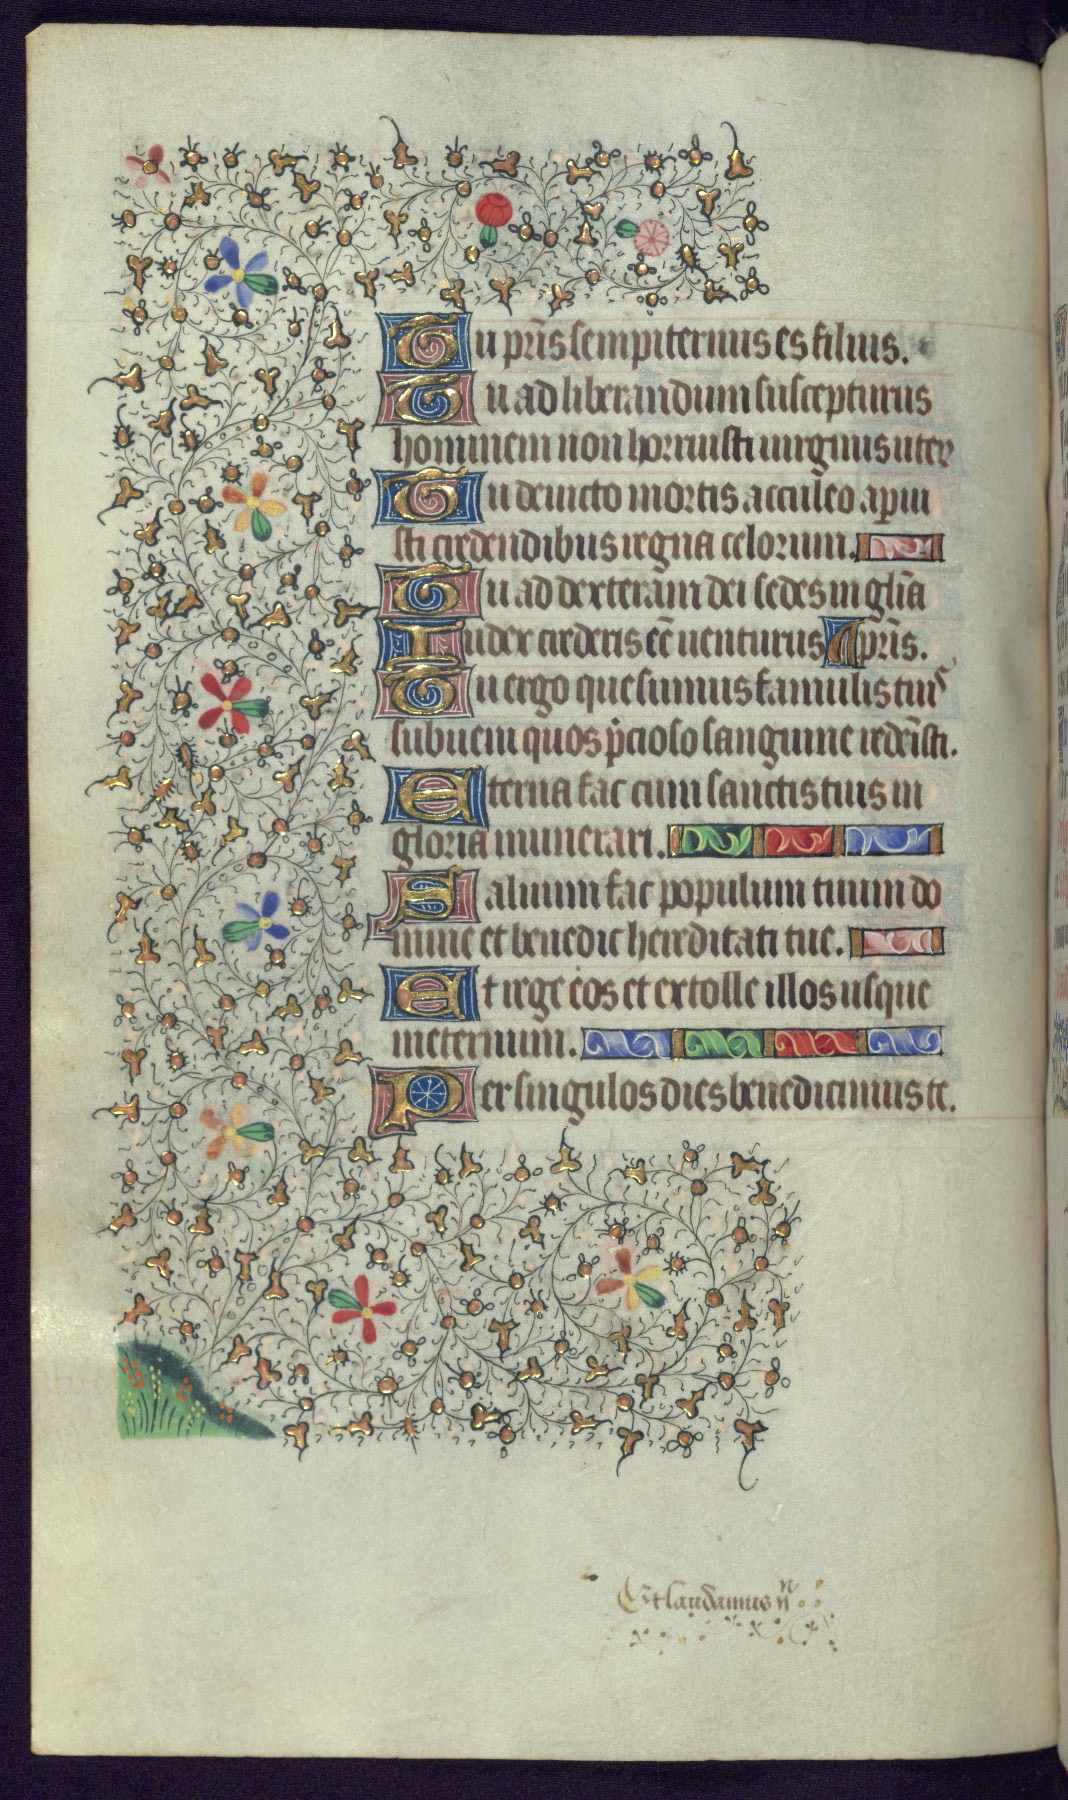 Tu pr̄is sempiternus es filius.
Tu ad liberandum suscepturus
hominem non horruisti uirginis uterꝫ
Tu deuicto mortis acculeo aperui
sti credendibus regna celorum.
Tu ad dexteram dei sedes in gl̄ia
Iudex crederis eē uenturus A pr̄is.
Tu ergo quesumus famulis tuis
subueni quos p̄cioso sanguine redēisti.
Eterna fac cum sanctis tuis in
gloria munerari.
Saluum fac populum tuum do
mine et benedic hereditati tue.
Et rege eos et extolle illos usque
ineternum.
Per singulos dies benedicimus te.
Et laudamus n̄